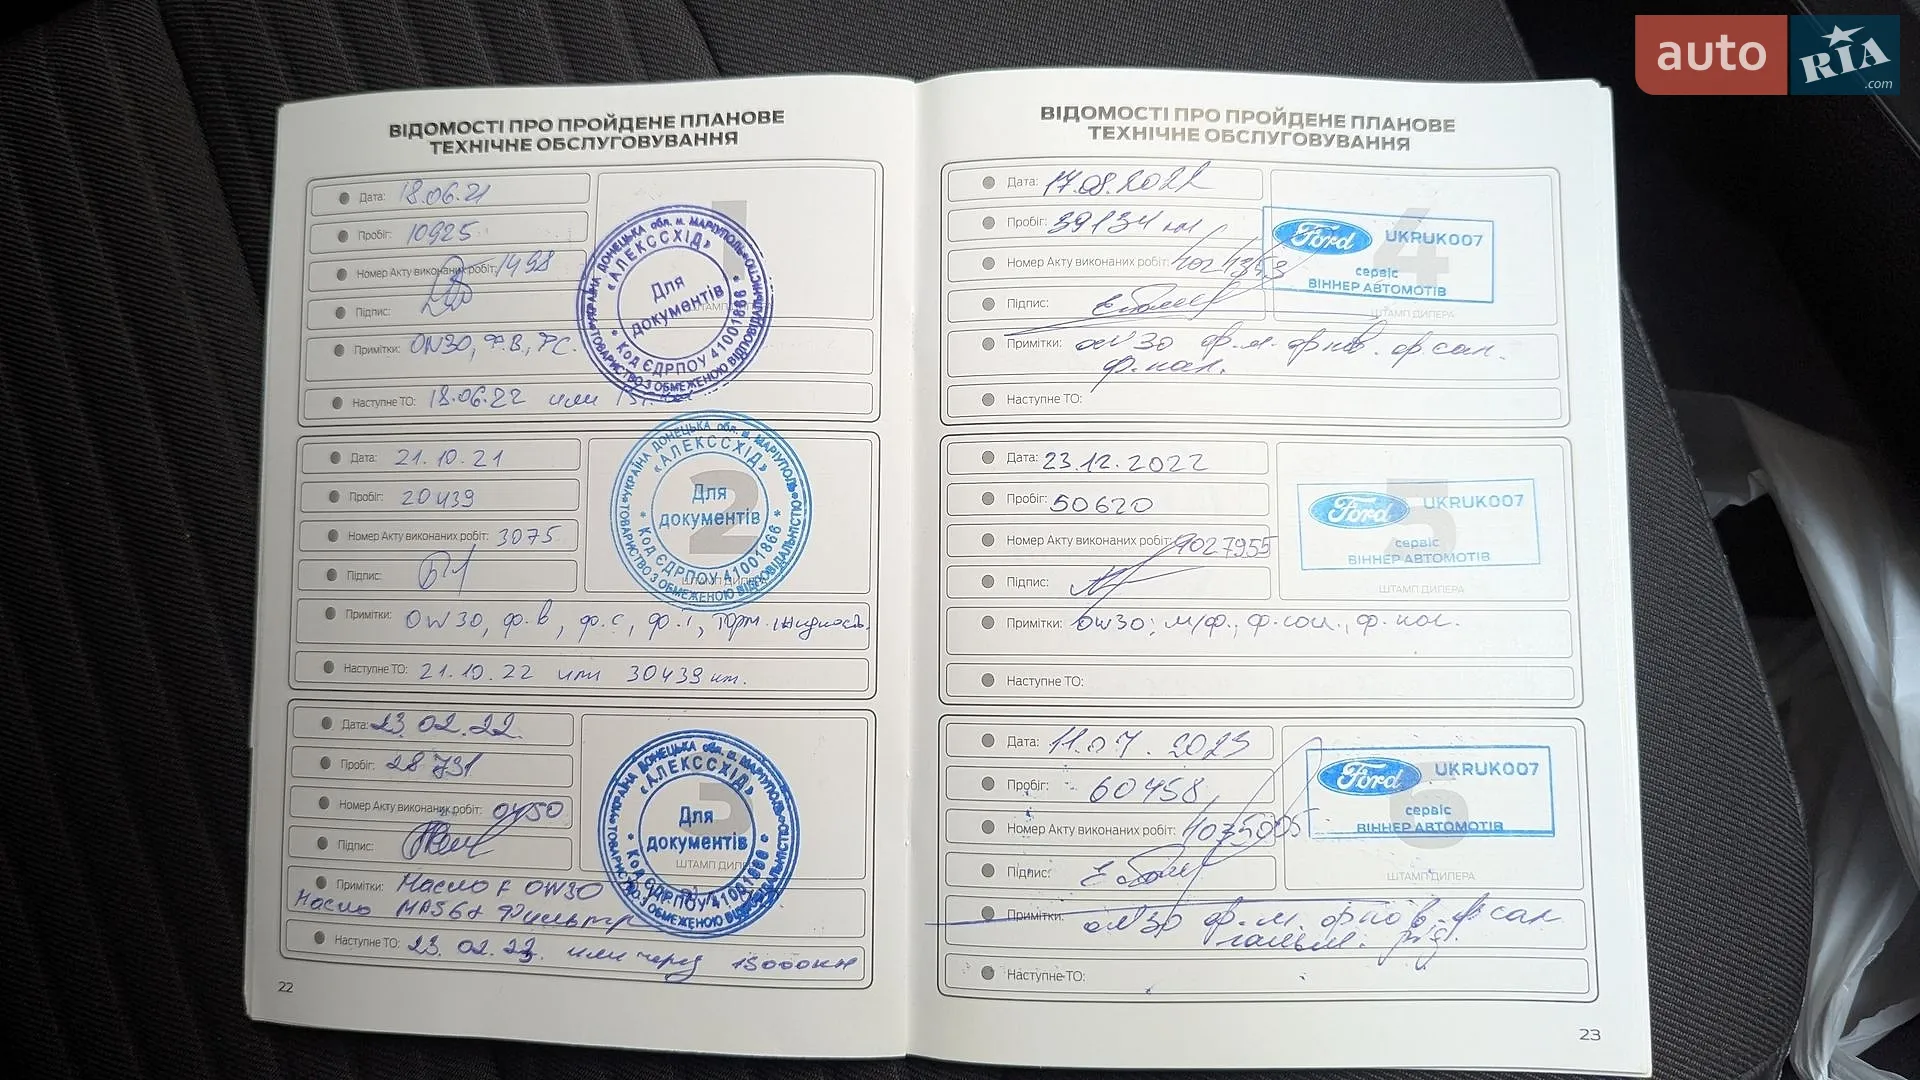 auto RIA.com
ВІДОМОСТІ ПРО ПРОЙДЕНЕ ПЛАНОВЕ
ТЕХНІЧНЕ ОБСЛУГОВУВАННЯ
Дата: 18.06.21
Пробіг: 10925
Номер Акту виконаних робіт: 1498
Підпис:
Примітки: 0W30, Ф.В, FC.
Наступне ТО: 18.06.22 или
УКРАЇНА ДОНЕЦЬКА обл. м. МАРІУПОЛЬ
ТОВАРИСТВО З ОБМЕЖЕНОЮ ВІДПОВІДАЛЬНІСТЮ
«АЛЕКССХІД»
Для
документів
Код ЄДРПОУ 41001866
1
Дата: 21.10.21
Пробіг: 20439
Номер Акту виконаних робіт: 3075
Підпис:
Примітки: 0W30, ф.в, ф.с, ф.i, торм. жидкость.
Наступне ТО: 21.10.22 или 30439 км.
УКРАЇНА ДОНЕЦЬКА обл. м. МАРІУПОЛЬ
ТОВАРИСТВО З ОБМЕЖЕНОЮ ВІДПОВІДАЛЬНІСТЮ
«АЛЕКССХІД»
Для
документів
Код ЄДРПОУ 41001866
2
ШТАМП ДИЛЕРА
Дата: 23.02.22.
Пробіг: 28731
Номер Акту виконаних робіт: 0450
Підпис:
Примітки: Масло F 0W30
Масло фильтр
Наступне ТО: 23.02.23. или через 15000км
УКРАЇНА ДОНЕЦЬКА обл. м. МАРІУПОЛЬ
ТОВАРИСТВО З ОБМЕЖЕНОЮ ВІДПОВІДАЛЬНІСТЮ
«АЛЕКССХІД»
Для
документів
Код ЄДРПОУ 41001866
3
ШТАМП ДИЛЕРА
22
ВІДОМОСТІ ПРО ПРОЙДЕНЕ ПЛАНОВЕ
ТЕХНІЧНЕ ОБСЛУГОВУВАННЯ
Дата: 17.08.2022
Пробіг: 39134 км
Номер Акту виконаних робіт:
Підпис:
Примітки: 0W30 ф.м. ф.пов. ф.сал.
ф.пал.
Наступне ТО:
Ford UKRUK007
сервіс
ВІННЕР АВТОМОТІВ
4
ШТАМП ДИЛЕРА
Дата: 23.12.2022
Пробіг: 50620
Номер Акту виконаних робіт: 4027955
Підпис:
Примітки: 0W30; м/ф., ф.сал., ф.пов.
Наступне ТО:
Ford UKRUK007
сервіс
ВІННЕР АВТОМОТІВ
5
ШТАМП ДИЛЕРА
Дата: 11.07.2023
Пробіг: 60458
Номер Акту виконаних робіт: 4035005
Підпис:
Примітки: 0W30 ф.м. ф.пов. ф.сал
гальм. рід.
Наступне ТО:
Ford UKRUK007
сервіс
ВІННЕР АВТОМОТІВ
6
ШТАМП ДИЛЕРА
23